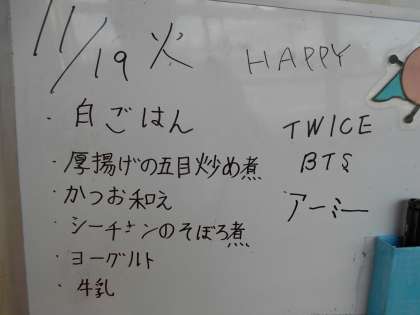 11/19 火
HAPPY
・白ごはん
・厚揚げの五目炒め煮
・かつお和え
・シーチキンのそぼろ煮
・ヨーグルト
・牛乳
TWICE
BTS
アーミー